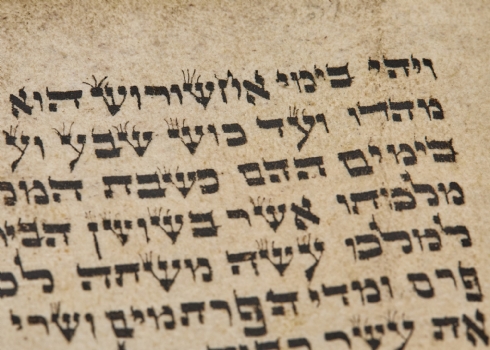 ויהי בימי אחשורוש הוא
מהדו ועד כוש שבע וע
בימים ההם כשבת המ
מלכותו אשר בשושן הבי
למלכו עשה משתה לכ
פרס ומדי הפרתמים ושרי
את עשר